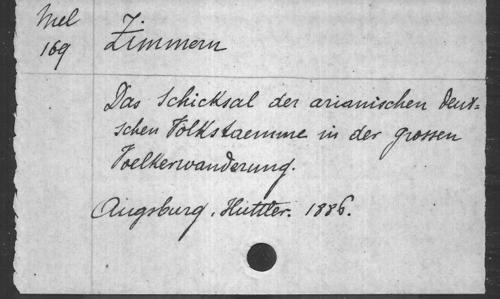 Mel
169
Zimmern
Das Schicksal der arianischen deut-
schen Volkstaemme in der grossen
Voelkerwanderung.
Augsburg, Huttler. 1886.